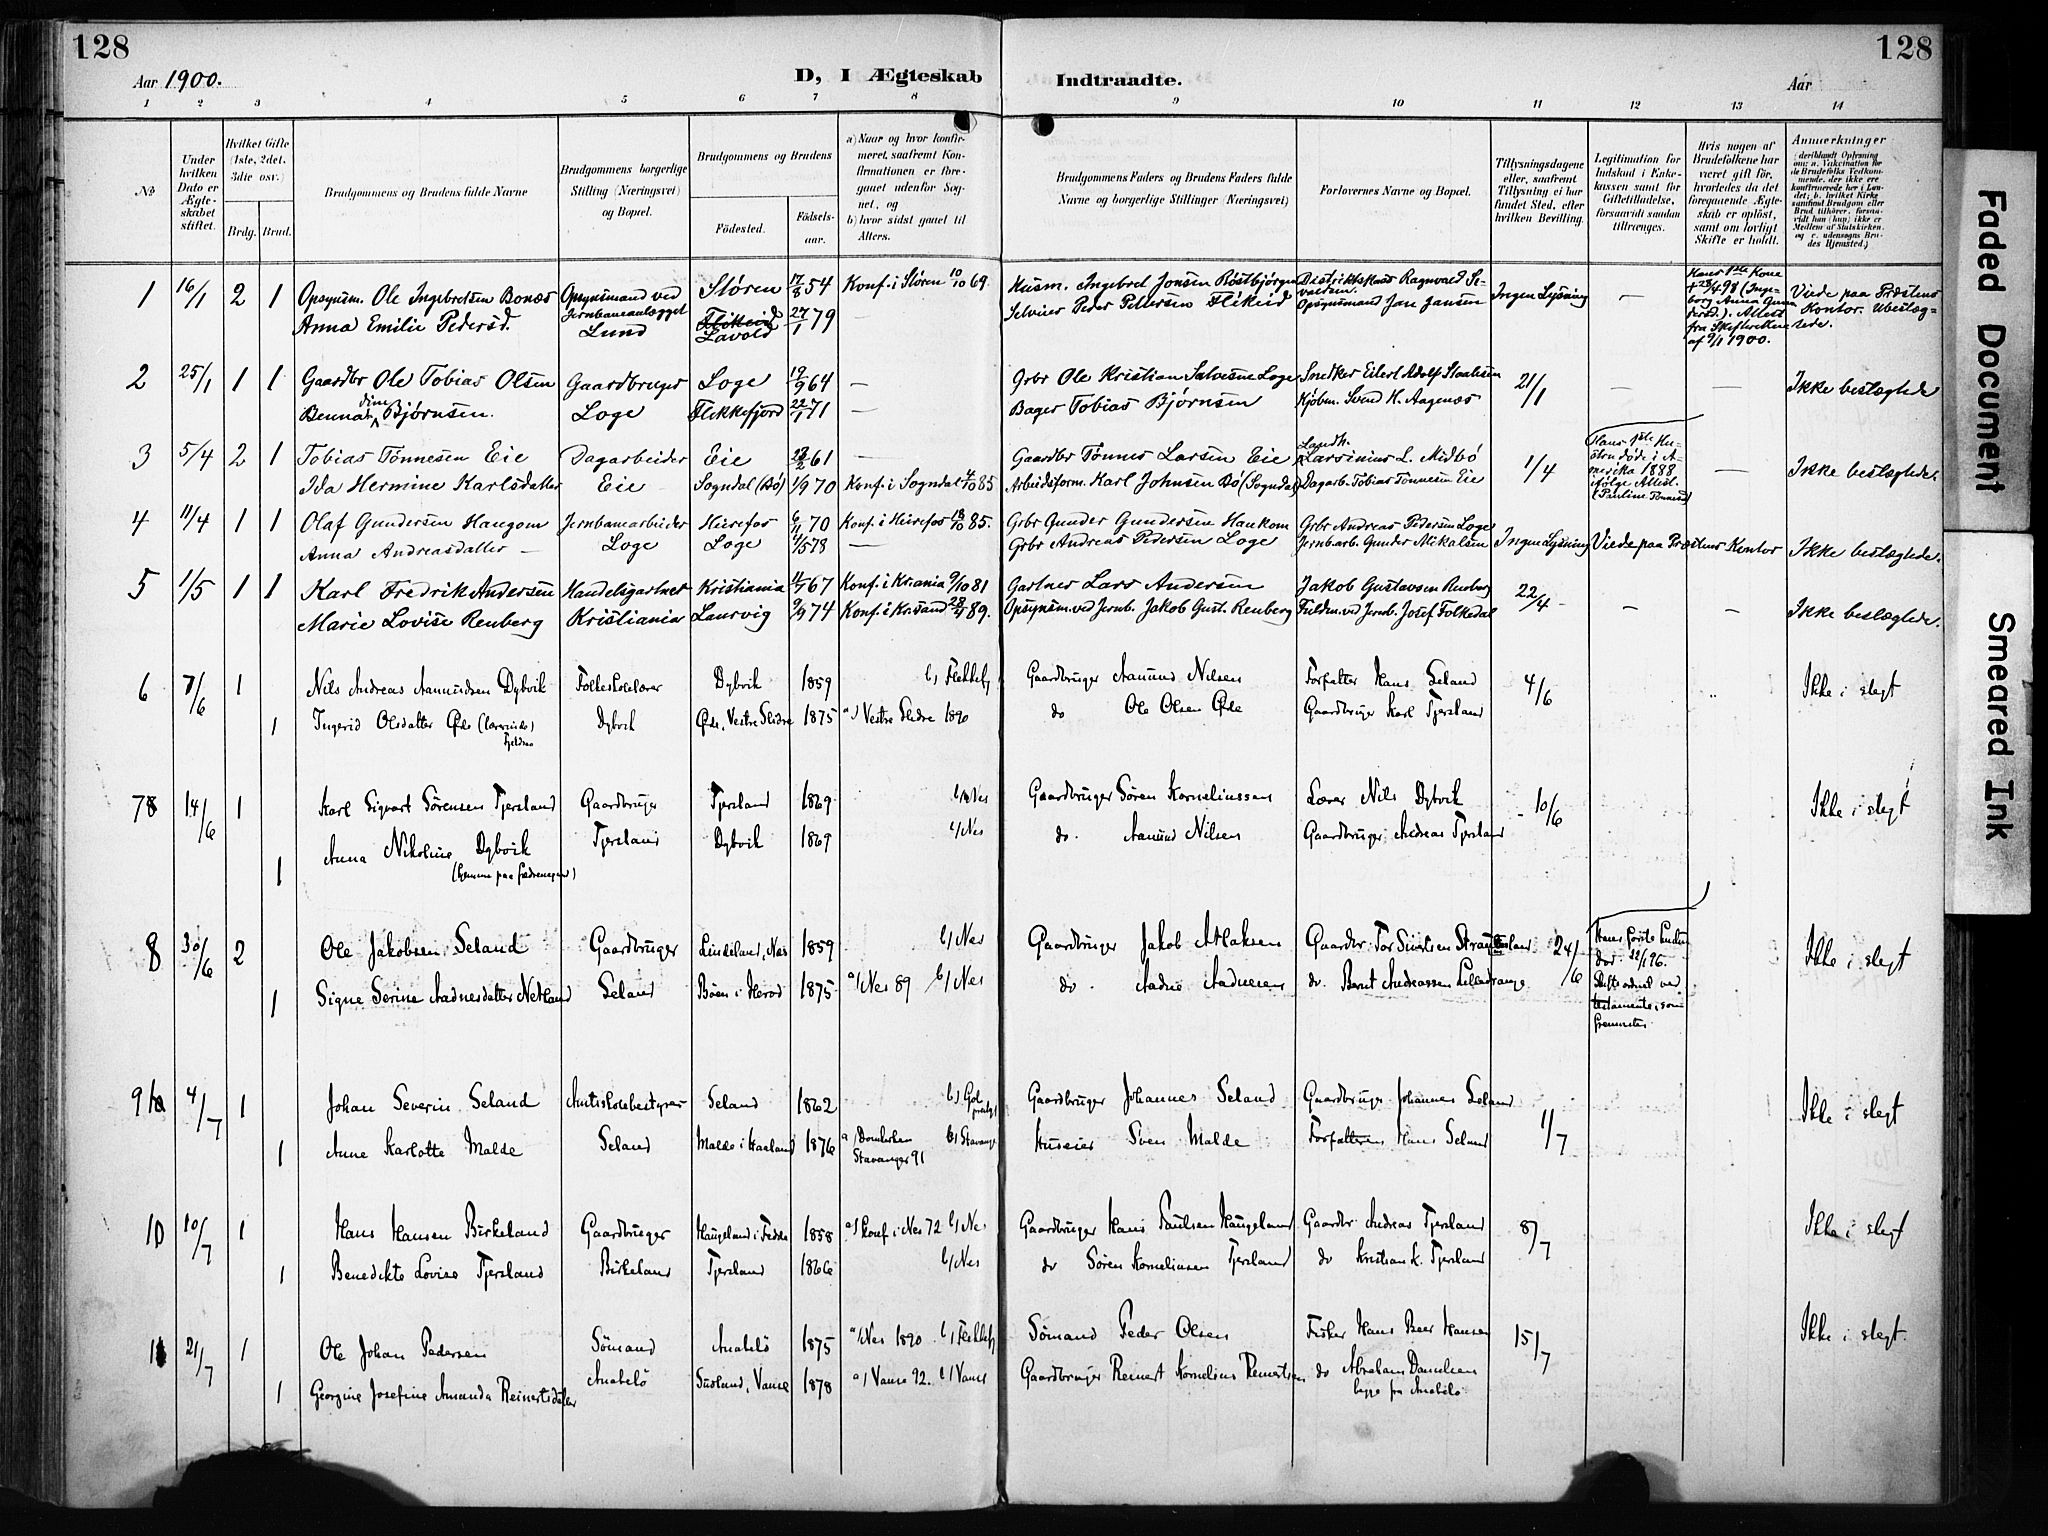 128
128
Aar 1900.
D, I Ægteskab Indtraadte.
Aar
1 2 3 4 5 6 7 8 9 10 11 12 13 14
No
Under hvilken Dato er Ægteskabet stiftet.
Hvilket Gifte (1ste, 2det, 3die osv.)
Brdg. Brud.
Brudgommens og Brudens fulde Navne
Brudgommens borgerlige Stilling (Næringsvei) og Bopæl.
Brudgommens og Brudens
Fødested. Fødselsaar.
a) Naar og hvor konfirmeret, saafremt Konfirmationen er foregaaet udenfor Sognet, og
b) hvor sidst gaaet til Alters.
Brudgommens Faders og Brudens Faders fulde Navne og borgerlige Stillinger (Næringsvei)
Forlovernes Navne og Bopæl.
Tillysningsdagene eller, saafremt Tillysning ei har fundet Sted, efter hvilken Bevilling.
Legitimation for Indskud i Enkekassen samt for Giftetilladelse, forsaavidt saadan tiltrænges.
Hvis nogen af Brudefolkene har været gift før, hvorledes da det foregaaende Ægteskab er opløst, samt om lovligt Skifte er holdt.
Anmerkninger
1 16/1 2 1 Opsynsm. Ole Ingebretsen Bonæs Opsynsmand ved Jernbaneanlægget Støren 17/8 54 Konf. i Støren 10/10 69. Husm. Ingebret Jonsen Røstbjørgen Distriktskas. Ragnvald Sevaldsen. Ingen Lysning — Hans 1ste Kone + 23/4 98 (Ingeborg Anna Gundersd.). Attest fra Skifteretten af 9/1 1900. Viede paa Præstens Kontor. Ubeslægtede.
Anna Emilie Pedersd. Lund Flikeid Lavold 27/1 79 — Selveier Peder Pettersen Flikeid Opsynsmand Jan Jansen
2 25/1 1 1 Gaardbr Ole Tobias Olsen Gaardbruger Loge 19/9 64 — Grbr Ole Kristian Salvesen Loge Snedker Eilert Adolf Staalesen 21/1 — — Ikke beslægtede
Bennadine Bjørnsen. Loge Flekkefjord 22/1 71 — Bager Tobias Bjørnsen Kjøbm. Svend H. Aagenæs
3 5/4 2 1 Tobias Tønnesen Eie Dagarbeider Eie 23/2 61 — Gaardbr Tønnes Larsen Eie Landh. Larsinius L. Midbø 1/4 Hans 1ste Hustru døde i Amerika 1888 ifølge Attest. (Pauline Tønnesd) — Ikke beslægtede.
Ida Hermine Karlsdatter Eie Sogndal (Bø) 1/9 70 Konf. i Sogndal 4/10 85 Arbeidsform. Karl Johnsen Bø (Sogndal) Dagarb. Tobias Tønnesen Eie
4 11/4 1 1 Olaf Gundersen Haugom Jernbanearbeider Hirefos 6/11 70 Konf. i Hirefos 18/10 85. Grbr Gunder Gundersen Haukom Grbr Andreas Pedersen Loge Ingen Lysning Viede paa Præstens Kontor Ikke beslægtede.
Anna Andreasdatter — Loge Loge 4/5 78 — Grbr Andreas Pedersen Loge Jernbarb. Gunder Mikalsen
5 1/5 1 1 Karl Fredrik Andersen Handelsgartner Kristiania 11/7 67 Konf. i Kr.ania 9/10 81 Gartner Lars Andersen Jakob Gustavsen Renberg 22/4 — — — Ikke beslægtede.
Marie Lovise Renberg Kristiania Laurvig 9/9 74 Konf. i Kr.sand 28/4 89. Opsynsm. ved Jernb. Jakob Gust. Renberg Fuldm. ved Jernb. Josef Folkedal
6 7/6 1 Nils Andreas Aamundsen Dybvik Folkeskolelærer Dybvik 1859 b) Flekkefj Gaardbruger Aamund Nilsen Forfatter Hans Seland 4/6 Ikke i slegt
1 Ingerid Olsdatter Øde (lærerinde) Dybvik Øde, Vestre Slidre 1875 a) Vestre Slidre 1890 do Ole Olsen Øde Gaardbruger Karl Tjersland
7 14/6 1 Karl Sigvart Sørensen Tjersland Gaardbruger Tjersland 1869 b) Nes Gaardbruger Søren Korneliussen Lærer Nils Dybvik 10/6 Ikke i slegt
1 Anna Nikoline Dybvik Tjersland Dybvik 1869 b/ Nes do. Aamund Nilsen Gaardbruger Andreas Tjersland
(hjemme paa fædrenegaard)
8 30/6 2 Ole Jakobsen Seland Gaardbruger Lindeland, Nes 1859 b/ Nes Gaardbruger Jakob Atlaksen Gaardbr Tor Sivertsen 24/6 Hans første hustru død 22/1 96. Skifte ordnet ved testamente, som fremvistes Ikke i slegt
1 Signe Serine Aadnesdatter Netland Seland Bøen i Herad 1875 a/ Nes 89 b/ Nes do. Aadne Aadnesen do. Bernt Andreassen
9 4/7 1 Johan Severin Seland Amtskolebestyrer Seland 1862 b) Gol Gaardbruger Johannes Seland Gaardbruger Johannes Seland 1/7 Ikke i slegt
1 Anne Karlotte Malde Seland Malde i Haaland 1876 a) Domkirken Stavanger 91 b) Stavanger Huseier Sven Malde Forfatteren Hans Seland
10 10/7 1 Hans Hansen Birkeland Gaardbruger Haugeland i Fedde 1858 a) Konf. i Nes 72 b/ Nes Gaardbruger Hans Paulsen Haugeland Gaardbr. Andreas Tjersland 8/7 Ikke i slegt
1 Benedikte Lovise Tjersland Birkeland Tjersland 1866 b/ Nes do Søren Korneliusen Tjersland do Kristian K. Tjersland
11 21/7 1 Ole Johan Pedersen Sømand Anabelø 1875 a/ Nes 1890 b) Flekkefj Sømand Peder Olsen Fisker Hans Beer Hansen 15/7 Ikke i slegt.
1 Georgine Josefine Amanda Reinertsdatter Anabelø Vanse 1878 a) Vanse 92. b/ Vanse Gaardbruger Reinert Kornelius Reinertsen do Abraham Danielsen
begge fra Anabelø
Faded Document
Smeared Ink